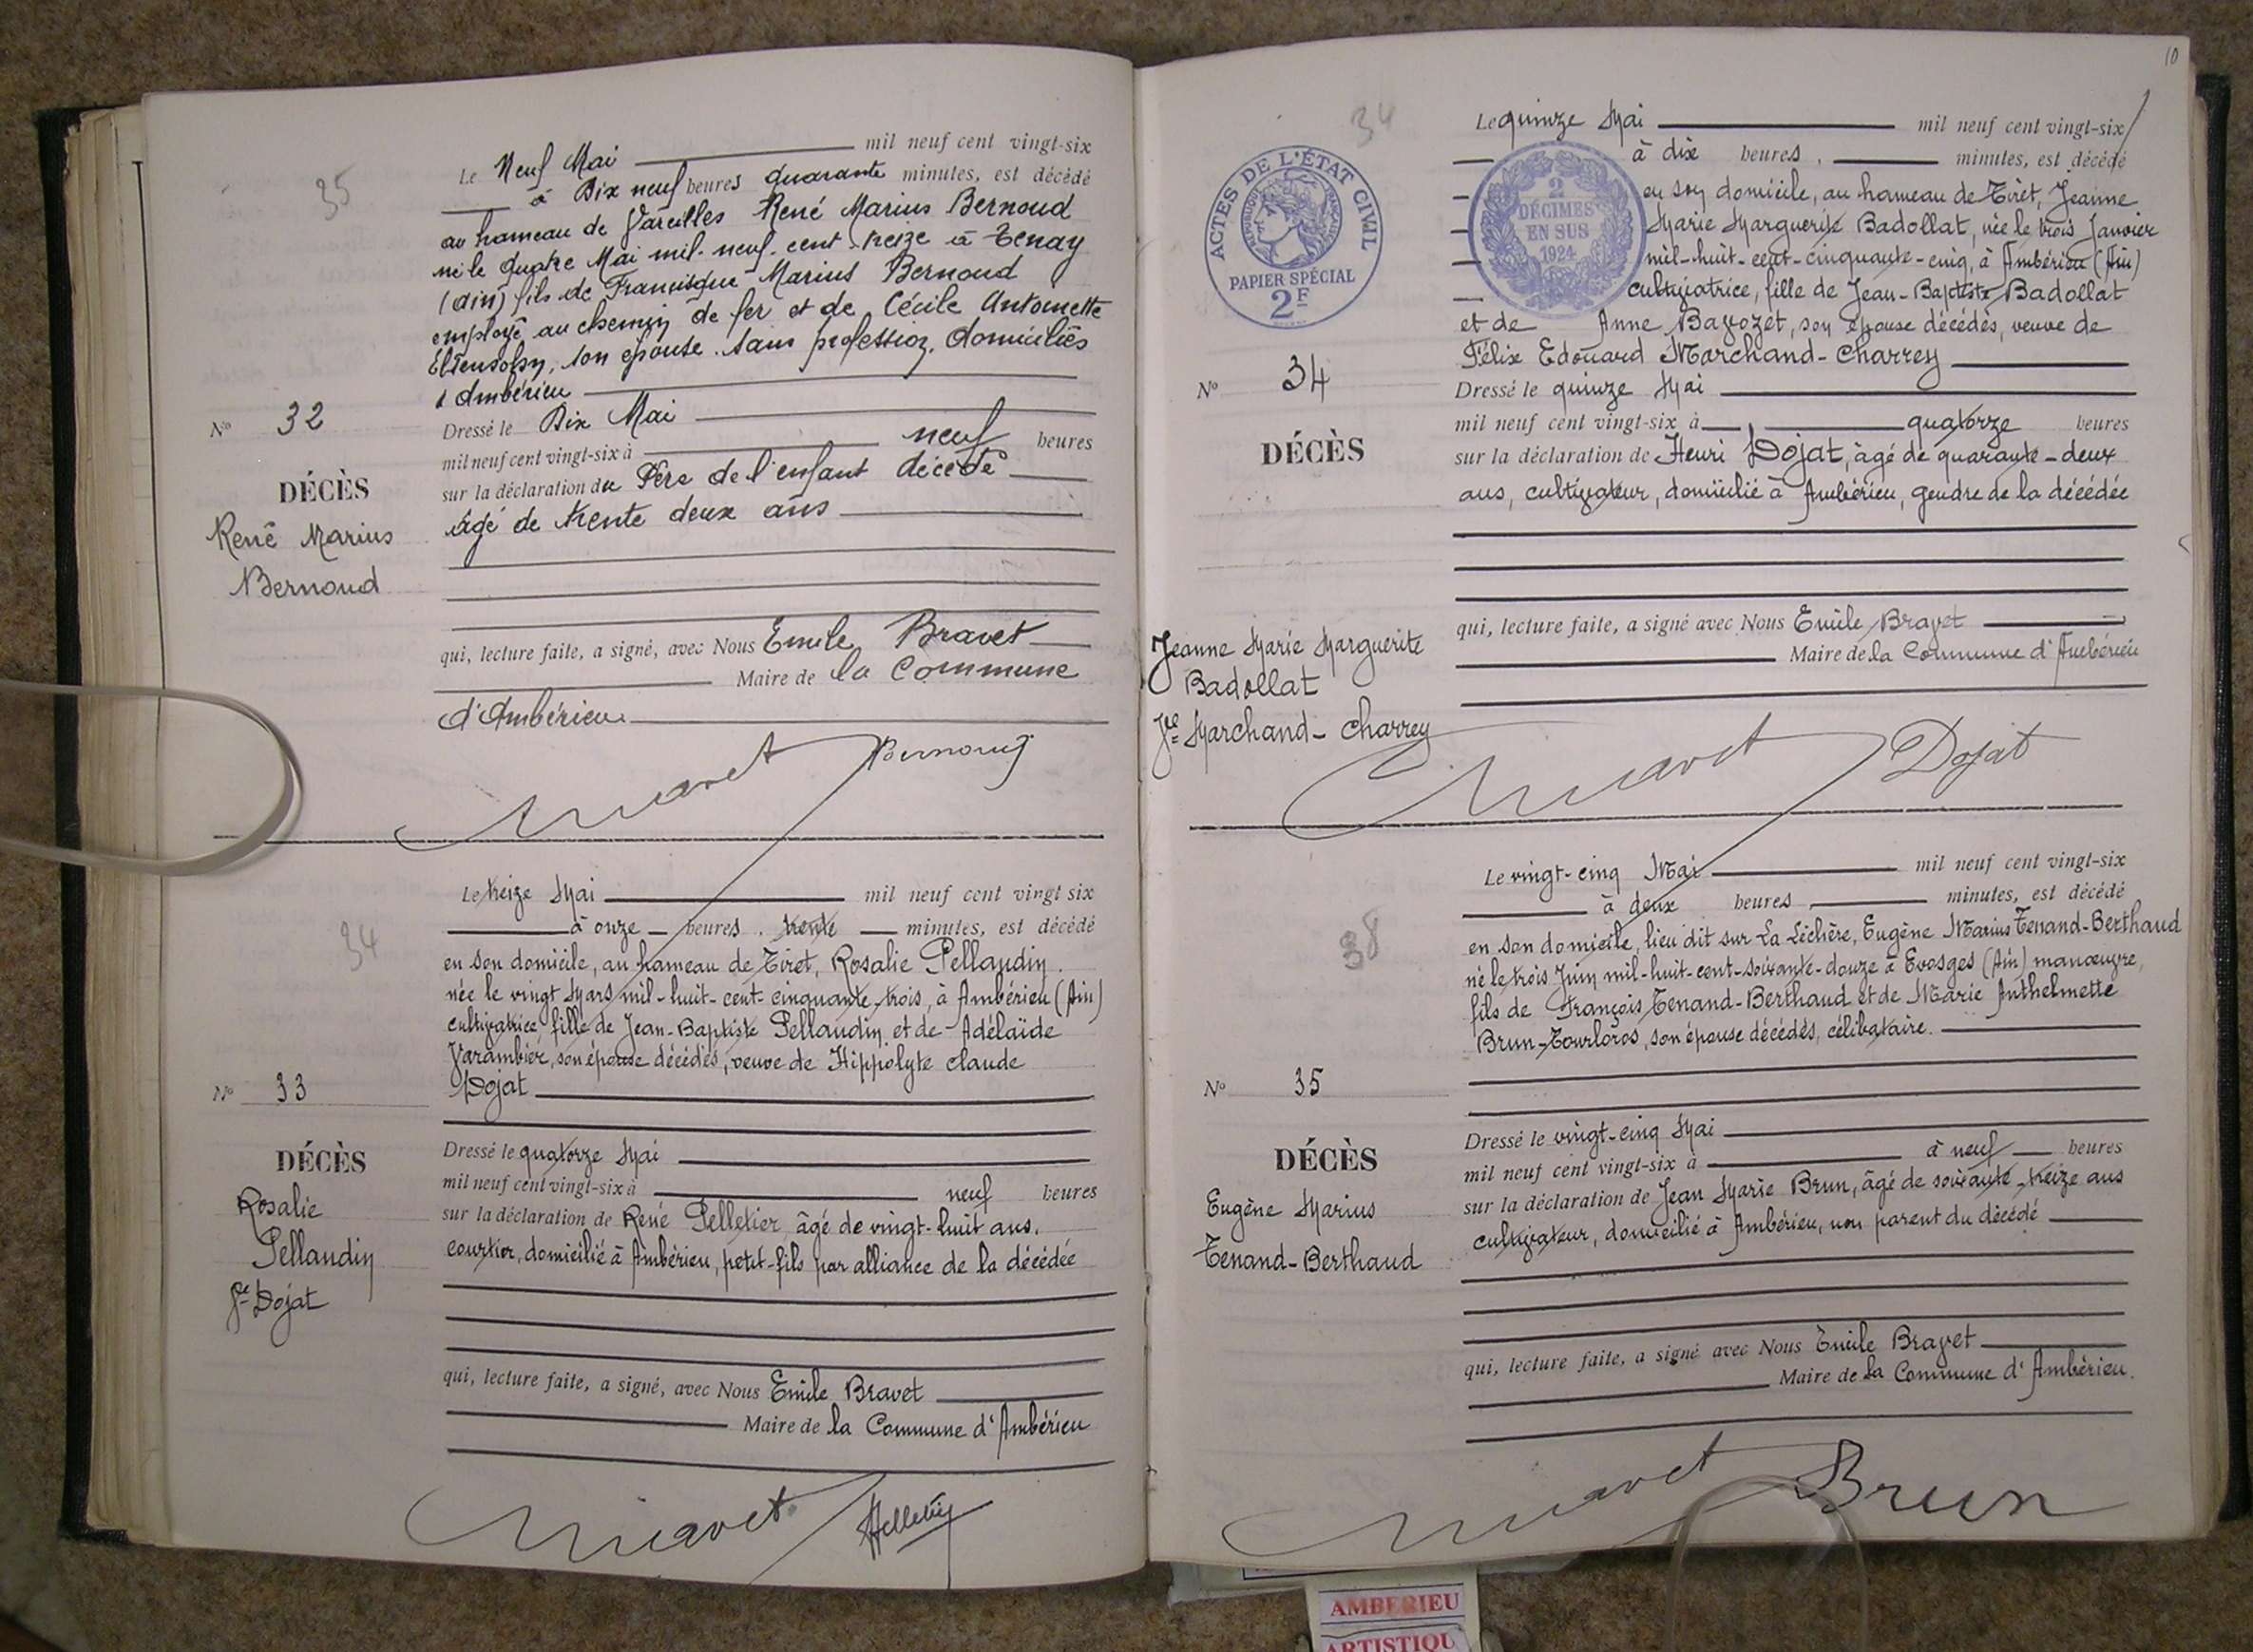 35
Le Neuf Mai mil neuf cent vingt-six
à Dix neuf heures quarante minutes, est décédé
au hameau de Vareilles René Marius Bernoud
né le quatre Mai mil-neuf-cent-treize à Tenay
(Ain) fils de Francisque Marius Bernoud
employé au chemin de fer et de Cécile Antoinette
son épouse. sans profession, domiciliés
à Ambérieu
No 32
Dressé le Dix Mai
mil neuf cent vingt-six à neuf heures
sur la déclaration du Père de l'enfant décédé
âgé de trente deux ans
DÉCÈS
René Marius
Bernoud
qui, lecture faite, a signé, avec Nous Emile Bravet
Maire de la Commune
d'Ambérieu
Bravet Bernoud
34
Le treize Mai mil neuf cent vingt six
à onze heures. trente minutes, est décédé
en son domicile, au hameau de Tiret, Rosalie Pellaudin
née le vingt Mars mil-huit-cent-cinquante-trois, à Ambérieu (Ain)
cultivatrice fille de Jean-Baptiste Pellaudin et de Adélaïde
Varambier, son épouse décédés, veuve de Hippolyte claude
Dojat
No 33
DÉCÈS
Rosalie
Pellaudin
Ve Dojat
Dressé le quatorze Mai
mil neuf cent vingt-six à neuf heures
sur la déclaration de René Pelletier, âgé de vingt-huit ans,
courtier, domicilié à Ambérieu, petit-fils par alliance de la décédée
qui, lecture faite, a signé, avec Nous Emile Bravet
Maire de la Commune d'Ambérieu
Bravet Pelletier
10
34
ACTES DE L'ÉTAT CIVIL
RÉPUBLIQUE FRANÇAISE
PAPIER SPÉCIAL
2F
2
DÉCIMES
EN SUS
1924
Le quinze Mai mil neuf cent vingt-six
à dix heures. minutes, est décédé
en son domicile, au hameau de Tiret, Jeanne
Marie Marguerite Badollat, née le trois Janvier
mil-huit-cent-cinquante-cinq, à Ambérieu (Ain)
cultivatrice, fille de Jean-Baptiste Badollat
et de Anne Bavozet, son épouse décédés, veuve de
Félix Edouard Marchand-Charrey
No 34
DÉCÈS
Dressé le quinze Mai
mil neuf cent vingt-six à quatorze heures
sur la déclaration de Henri Dojat, âgé de quarante-deux
ans, cultivateur, domicilié à Ambérieu, gendre de la décédée
qui, lecture faite, a signé avec Nous Emile Bravet
Maire de la Commune d'Ambérieu
Jeanne Marie Marguerite
Badollat
Vve Marchand-Charrey
Bravet Dojat
38
Le vingt-cinq Mai mil neuf cent vingt-six
à deux heures minutes, est décédé
en son domicile, lieu dit sur La Léchère, Eugène Marius Tenand-Berthaud
né le trois Juin mil-huit-cent-soixante-douze à Evosges (Ain) manœuvre,
fils de François Tenand-Berthaud et de Marie Anthelmette
Brun-Tourloros, son épouse décédés, célibataire.
No 35
DÉCÈS
Eugène Marius
Tenand-Berthaud
Dressé le vingt-cinq Mai
mil neuf cent vingt-six à à neuf heures
sur la déclaration de Jean Marie Brun, âgé de soixante-treize ans
cultivateur, domicilié à Ambérieu, non parent du décédé
qui, lecture faite, a signé avec Nous Emile Bravet
Maire de la Commune d'Ambérieu.
Bravet Brun
AMBERIEU
ARTISTIQU